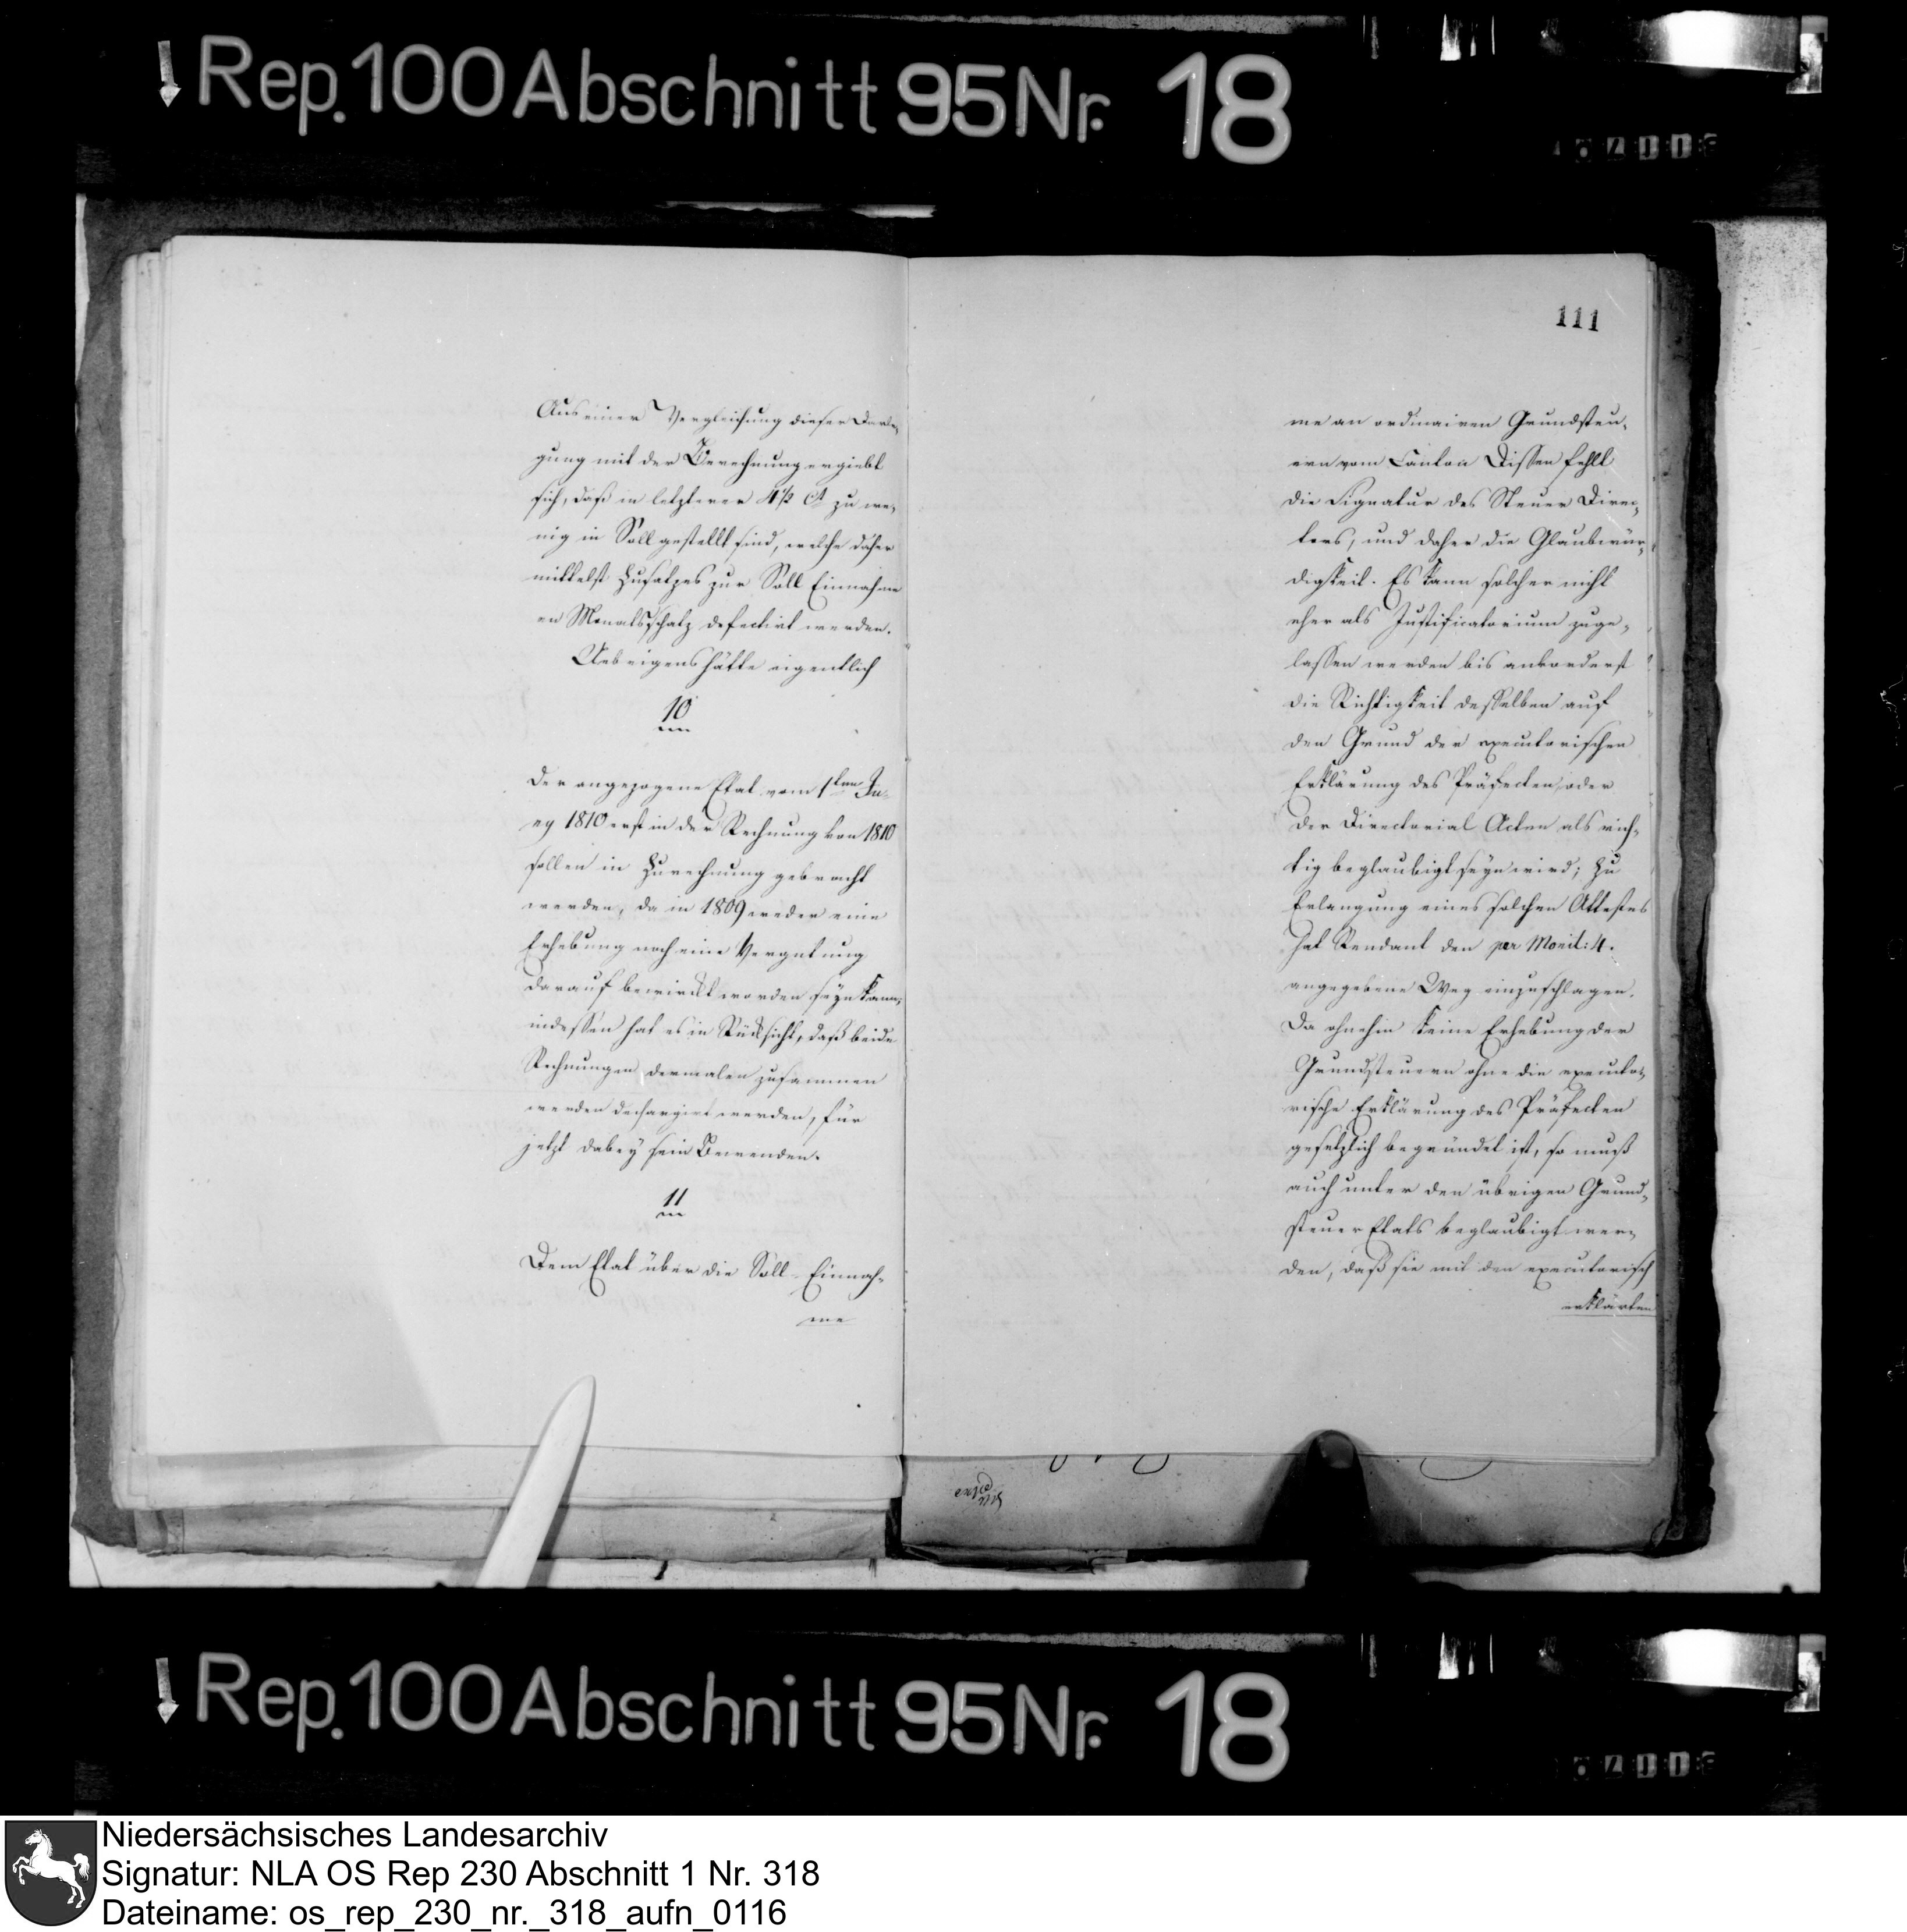 Rep. 100 Abschnitt 95 Nr. 18
Aus einer Vergleichung dieser Darle-
gung mit der Berechnung ergiebt
sich, daß in letzterer 4½ zu we-
nig in Soll gestellt sind, welche daher
mittelst Zusatzes zur Soll Einnahme
an Monatsschatz defectirt werden.
Uebrigens hätte eigentlich
10
der angezogene Etat vom 1ten Ja-
ny 1810 erst in der Rechnung von 1810
sollen in Zurechnung gebracht
werden, da in 1809 weder eine
Erhebung noch eine Vergütung
darauf bewirckt worden seyn kann;
indessen hat es in Rücksicht, daß beide
Rechnungen dermalen zusammen
werden dechargirt werden, für
jetzt dabey sein Bewenden.
11
Dem Etat über die Soll-Einnah-
me
111
me an ordinairen Grundsteu-
ern vom Canton Dissen fehlt
die Signatur des Steuer Direc-
tors, und daher die Glaubwür-
digkeit. Es kann solcher nicht
eher als Justificatorium zuge-
lassen werden bis anvorderst
die Richtigkeit desselben auf
den Grund der executorischen
Erklärung des Präfecten oder
der Directorial Acten als rich-
tig beglaubigt seyn wird; Zu
Erlangung eines solchen Attestes
hat Rendant den per Monit: 4.
angegebene Weg einzuschlagen.
Da ohnehin keine Erhebung der
Grundsteuern ohne die executo-
rische Erklärung des Präfecten
gesetzlich begründet ist, so muß
auch unter den übrigen Grund-
steuer Etats beglaubigt wer-
den, daß sie mit den executorisch
erklärten
Rep. 100 Abschnitt 95 Nr. 18
Niedersächsisches Landesarchiv
Signatur: NLA OS Rep 230 Abschnitt 1 Nr. 318
Dateiname: os_rep_230_nr._318_aufn_0116